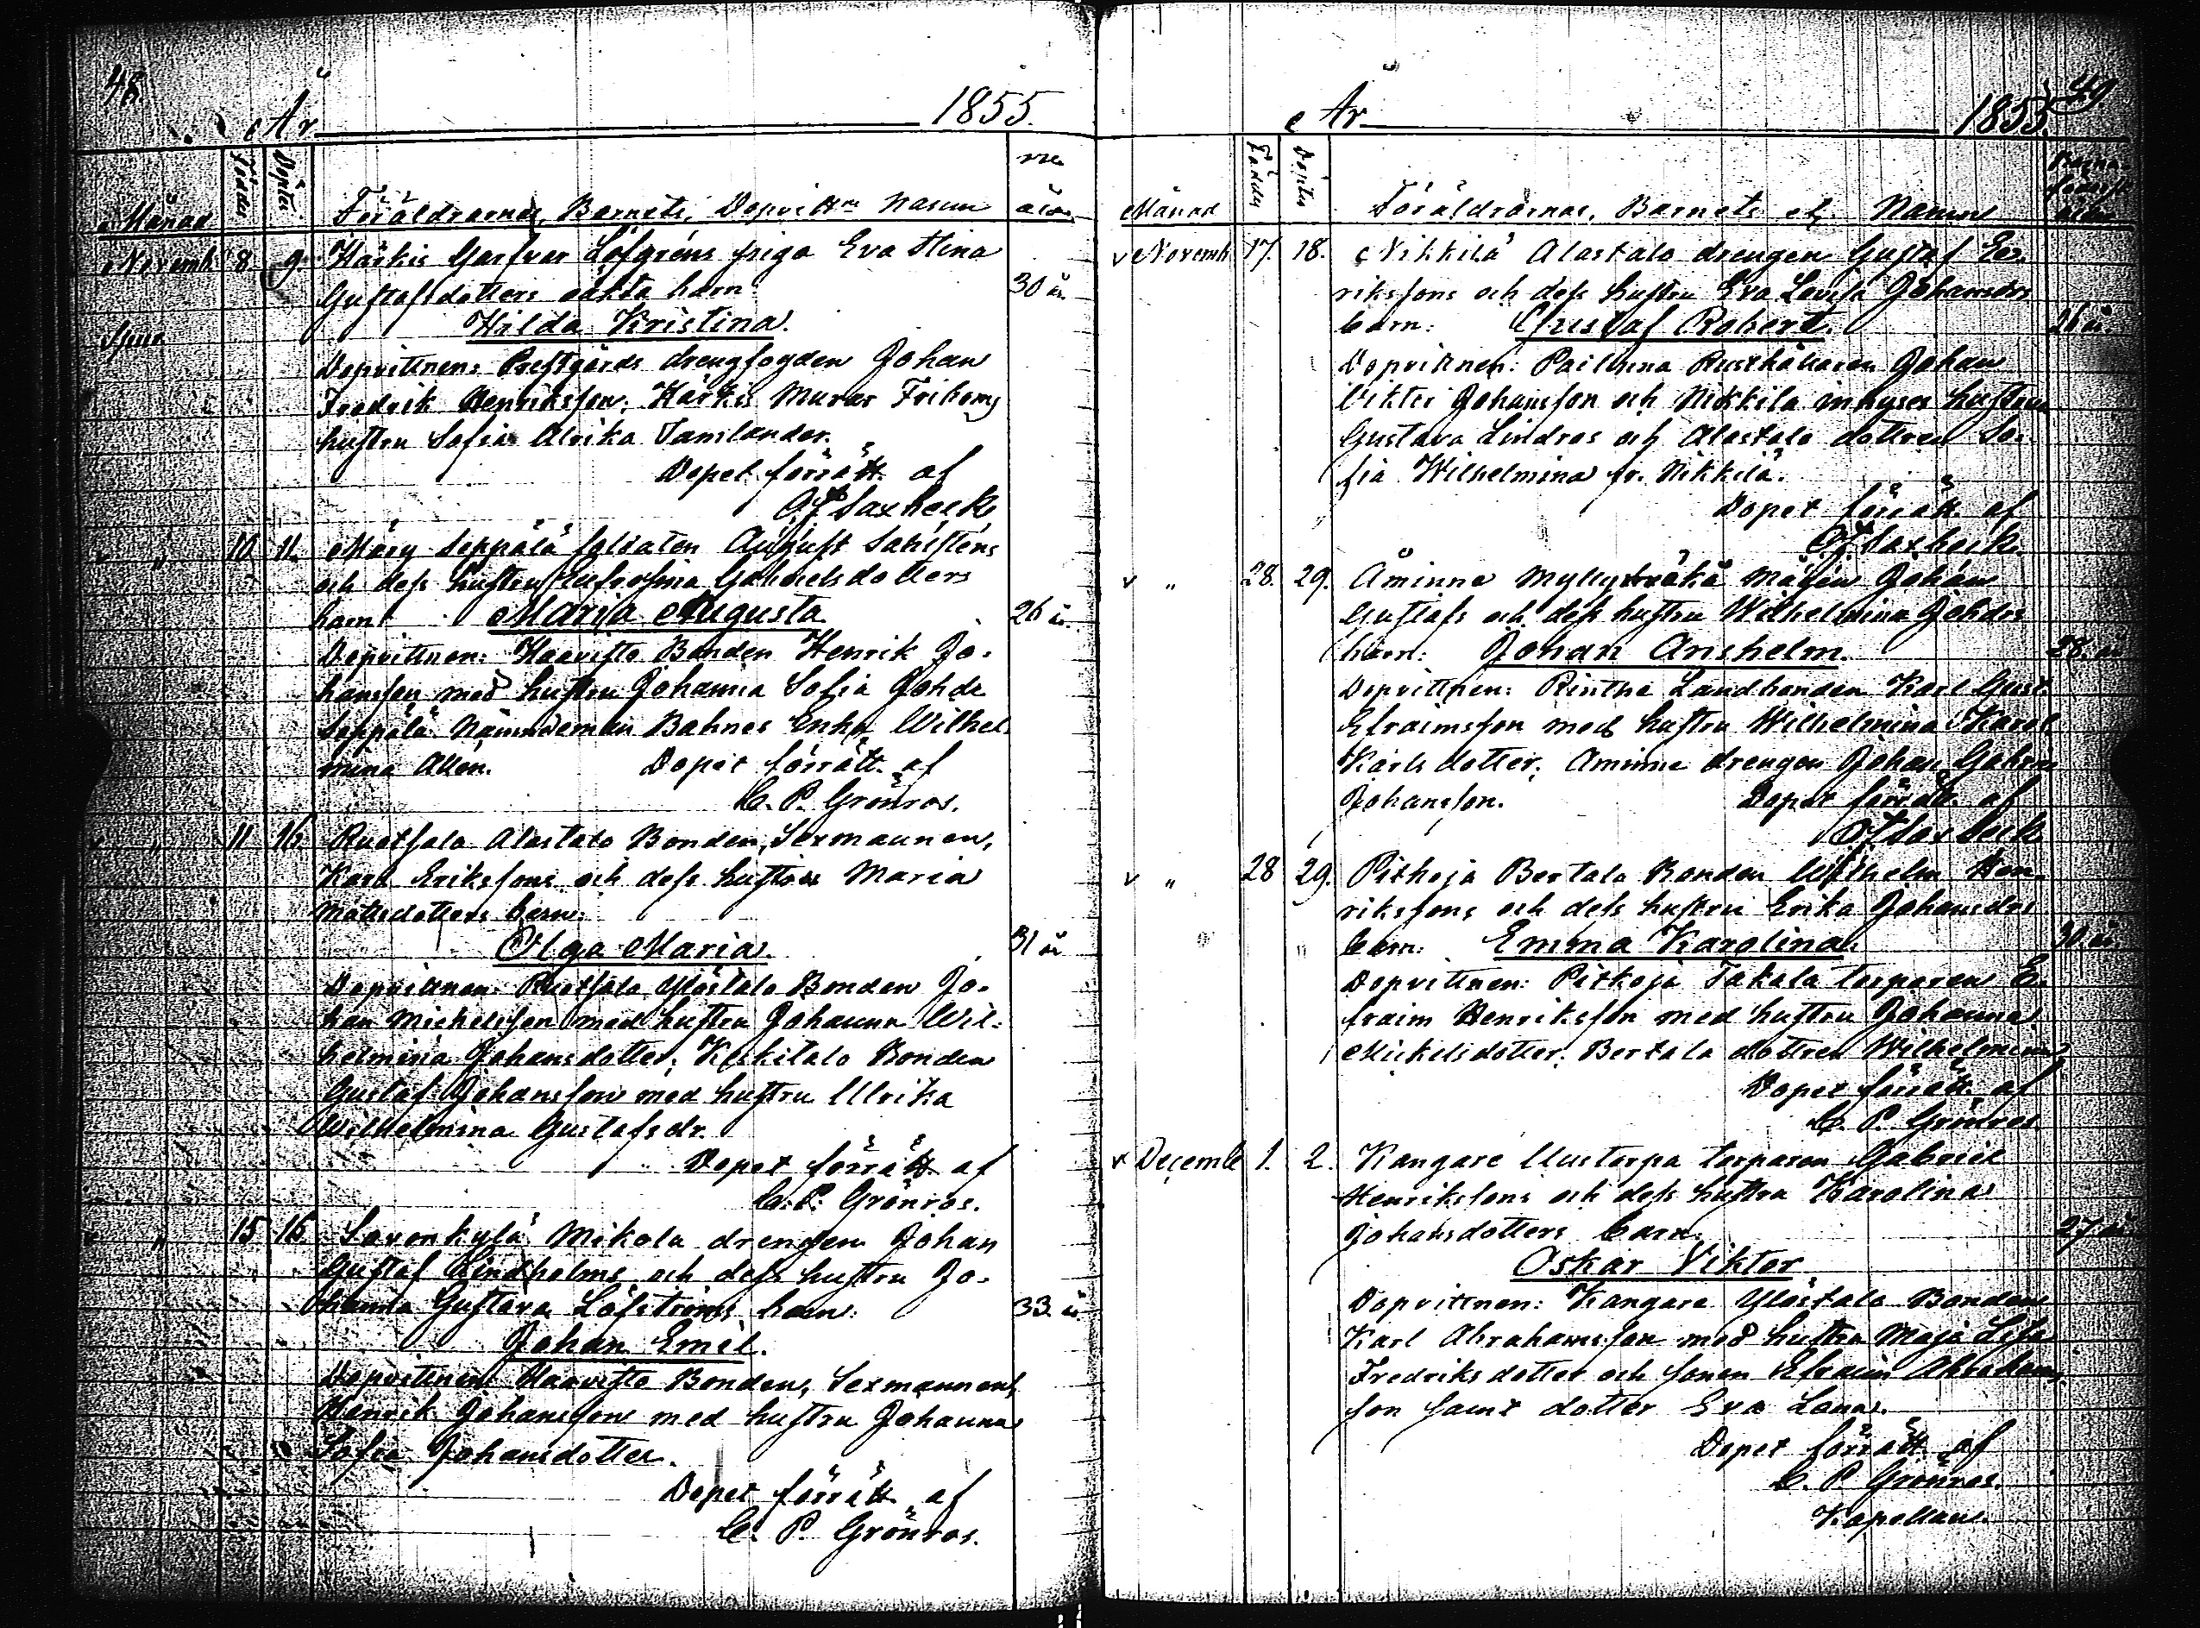 48.
År 1855.
Månad Födde Döpte Föräldrarnes, Barnets, Dopvittn. Namn
Novemb. 8. 9. Härkis Garfvar Löfgrens piga Eva Stina
Gustafsdotters oäkta barn 30 år
Hilda Kristina.
Dopvittnen: Prestgårds drengfogden Johan
Fredrik Henriksson, Härkis Murar
hustru Sofia Ulrika Tamlander.
Dopet förrätt. af
Saxbeck
" 10. 11. Märy Seppälä soldaten August Sahlsténs
och dess hustru Eufrosina Gabrielsdotters
barn Maria Augusta 26 år.
Dopvittnen: Haavisto Bonden Henrik Jo-
hansson med hustru Johanna Sofia Johdr
Seppälä Nämndeman Bahnes Enka Wilhel
mina Allén. Dopet förrätt. af
C. P. Grönros.
" 11 16 Ruotsala Alastalo Bonden, Sexmannen,
Karl Erikssons och dess hustru Maria
Mattsdotters barn:
Olga Maria. 31 år
Dopvittnen: Ruotsala Ylöstalo Bonden Jo-
han Michelsson med hustru Johanna Wil-
helmina Johansdotter; Keskitalo Bonden
Gustaf Johansson med hustru Ulrika
Wilhelmina Gustafsdr.
Dopet förrätt. af
C. P. Grönros.
" 15 16 Savonkylä Mikola drengen Johan
Gustaf Lindholms och dess hustru Jo-
hanna Gustava Löfströms barn: 33 år
Johan Emel.
Dopvittnen: Haavisto Bonden, Sexmannen,
Henrik Johansson med hustru Johanna
Sofia Johansdotter.
Dopet förrätt. af
C. P. Grönros.
49.
År 1855.
Månad Födde Döpte Föräldrarnas, Barnets etc. Namn
v Novemb. 17. 18. Nikkilä Alastalo drengen Gustaf Ee-
rikssons och dess hustru Eva Lovisa Johansdrs
barn: Gustaf Robert. 26 år
Dopvittnen: Pailinna Rusthållaren Johan
Viktor Johansson och Nikkilä inhyses hustru
Gustava Lindros och Alastalo dottren So-
fia Wilhelmina fr. Nikkilä.
Dopet förrätt. af
Saxbeck.
v " 28. 29. Åminne Mågen Johan
Gustafs och dess hustru Wilhelmina Johdrs
barn: Johan Anshelm. 28 år
Dopvittnen: Landbonden Karl Gust.
Efraimsson med hustru Wilhelmina Karol.
Karlsdotter; Åminne drengen Johan Gabriel
Johansson. Dopet förrätt. af
Saxbeck
v " 28 29. Pitkoja Bertala Bonden Wilhelm Hen-
rikssons och dess hustru Erika Johansdrs
barn: Emma Karolina. 30 år.
Dopvittnen: Pitkoja Takala torparen E-
fraim Henriksson med hustru Johanna
Mickelsdotter. Bertala dottren Wilhelmina
Dopet förrätt. af
C. P. Grönros
v Decemb. 1. 2. Kangare Uustorpa torparen Gabriel
Henrikssons och dess hustru Karolina
Johansdotters barn 27 år
Oskar Viktor
Dopvittnen: Kangare Ylöstalo Bonden
Karl Abrahamsson med hustru Maja Lisa
Fredriksdotter och sonen Efraim Abraham
son samt dotter Eva Lena.
Dopet förrätt. af
C. P. Grönros.
Kapellan.